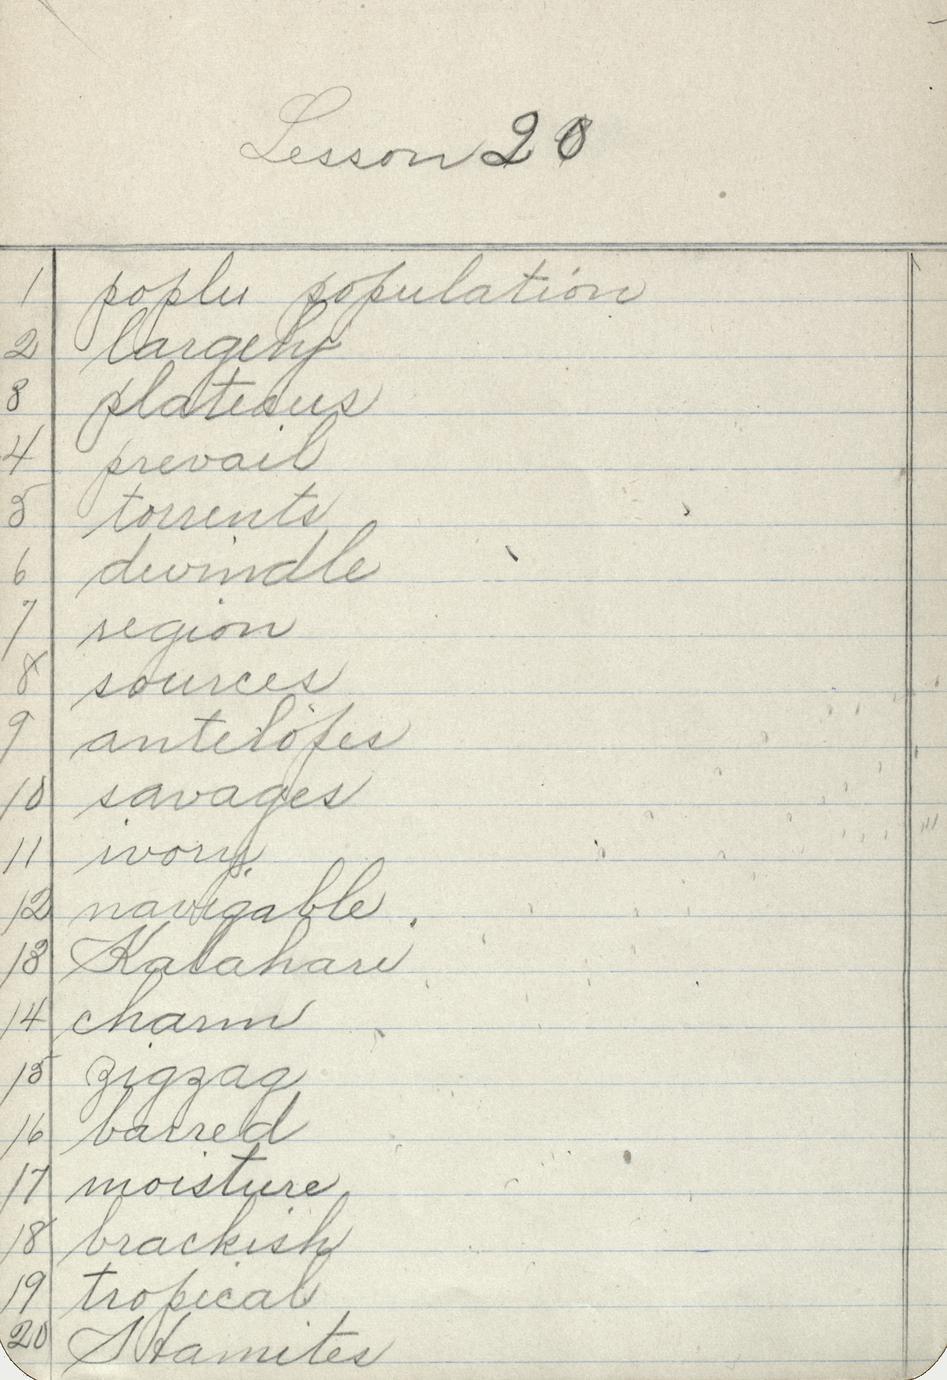 Lesson 20
1 poplu population
2 largely
3 plateaus
4 prevail
5 torrents
6 dwindle
7 region
8 sources
9 antelopes
10 savages
11 ivory
12 navigable.
13 Kalahari
14 charm
15 zigzag
16 barred
17 moisture
18 brackish
19 tropical
20 Hamites